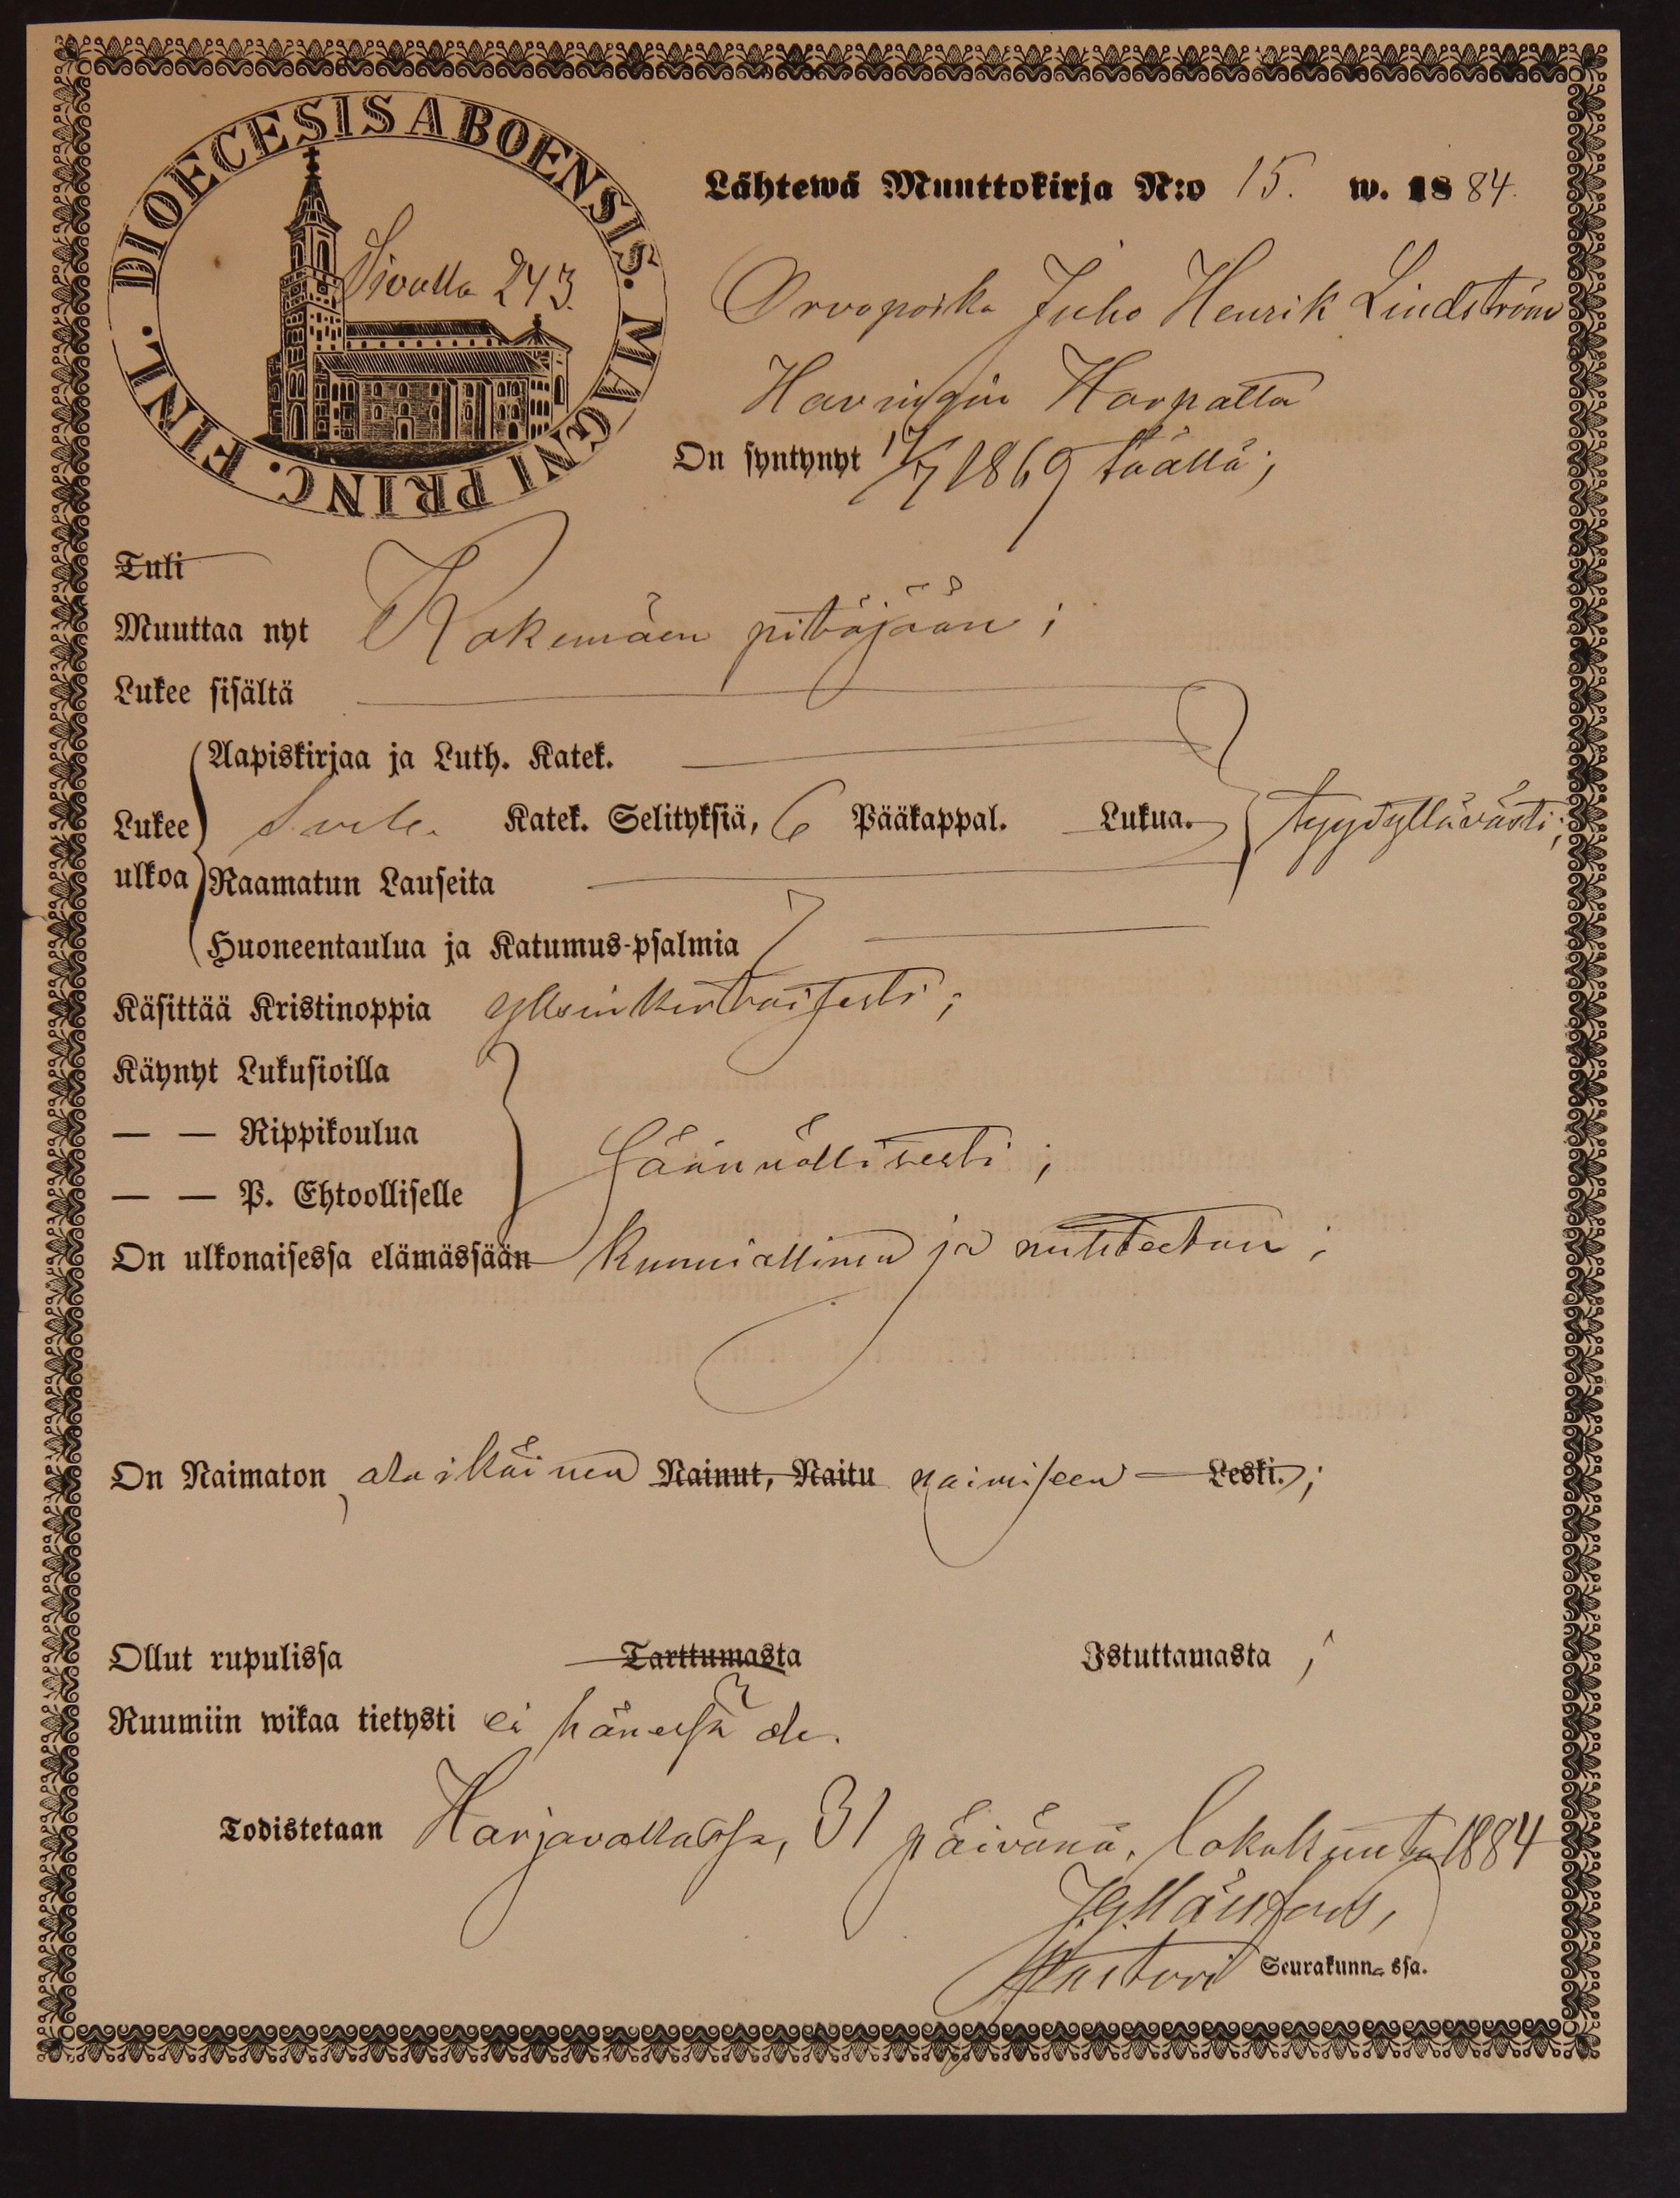 DIOECESIS ABOENSIS. MAGNI PRINC. FINL.
Sivulla 243.
Lähtewä Muuttokirja N:o 15. w. 1884.
Orvopoika Juho Henrik Lindström
On syntynyt 1869 täällä;
Tuli
Muuttaa nyt Kokemäen pitäjään;
Lukee sisältä
Aapiskirjaa ja Luth. Katek.
Lukee ulkoa Katek. Selityksiä, 6 Pääkappal. Lukua. tyydyttävästi;
Raamatun Lauseita
Huoneentaulua ja Katumus-psalmia
Käsittää Kristinoppia yksinkertaisesti;
Käynyt Lukusioilla
— — Rippikoulua
säännöllisesti;
— — P. Ehtoolliselle
On ulkonaisessa elämässään kunniallinen ja nuhteeton;
On Naimaton, alaikäinen Nainut, Naitu naimiseen Leski.;
Ollut rupulissa Tarttumasta Istuttamasta;
Ruumiin wikaa tietysti ei hänessä ole.
Todistetaan Harjavallassa, 31 päivänä, lokakuuta 1884
Pastori Seurakunn-ssa.